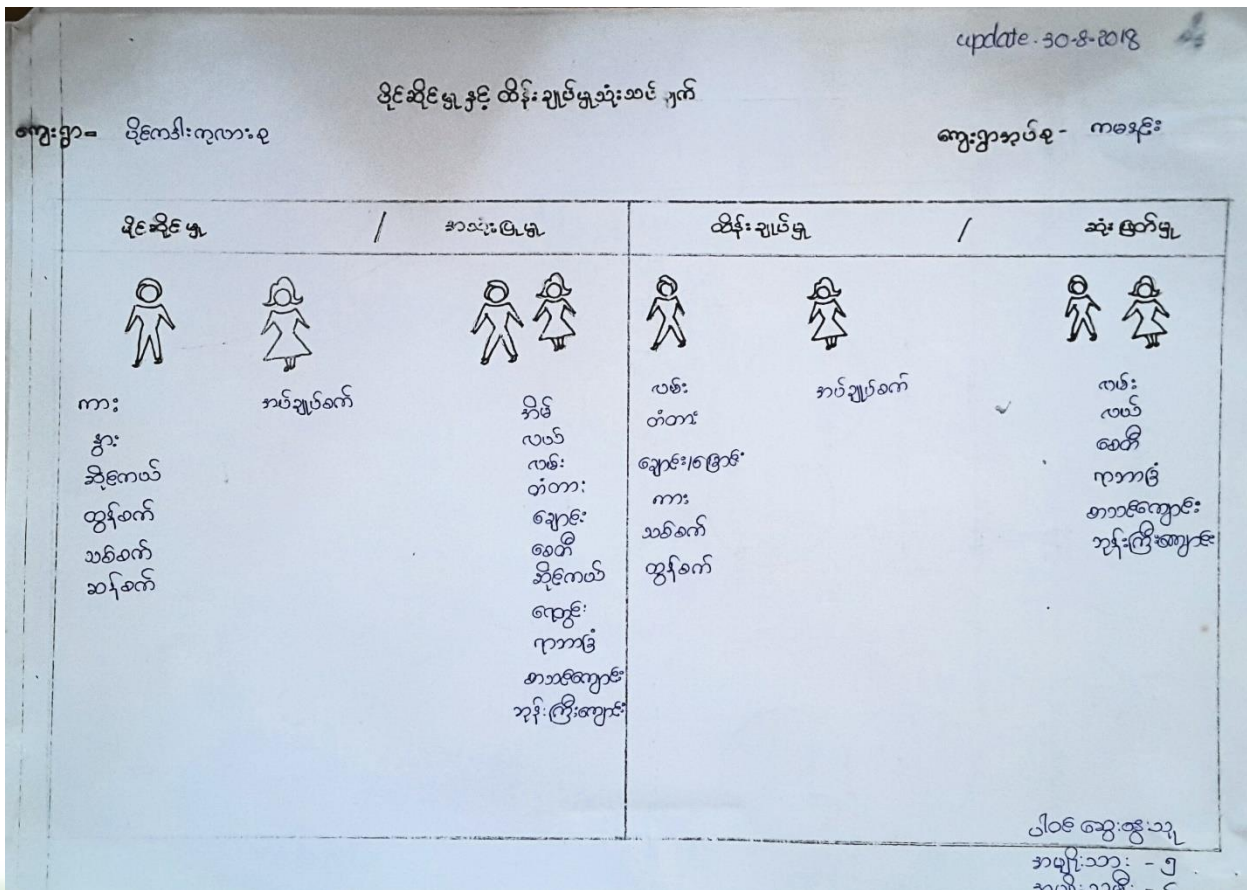 update. 30-8-2018
ပိုင်ဆိုင်မှု နှင့် ထိန်းချုပ်မှုသုံးသပ်ချက်
ကျေးရွာ- ပိုင်ကဒါးကုလားစု
ကျေးရွာအုပ်စု - ကမဒင်း
ပိုင်ဆိုင်မှု / အသုံးပြုမှု ထိန်းချုပ်မှု / ဆုံးဖြတ်မှု
ကား
နွား
ဆိုင်ကယ်
ထွန်စက်
သစ်စက်
ဆန်စက်
အပ်ချုပ်စက်
အိမ်
လယ်
လမ်း
တံတား
ချောင်း
စေတီ
ဆိုင်ကယ်
ရေတွင်း
ရာဘာခြံ
စာသင်ကျောင်း
ဘုန်းကြီးကျောင်း
လမ်း
တံတား
ချောင်း/မြောင်း
ကား
သစ်စက်
ထွန်စက်
အပ်ချုပ်စက်
လမ်း
လယ်
စေတီ
ရာဘာခြံ
စာသင်ကျောင်း
ဘုန်းကြီးကျောင်း
ပါဝင် ဆွေးနွေးသူ
အမျိုးသား - ၅